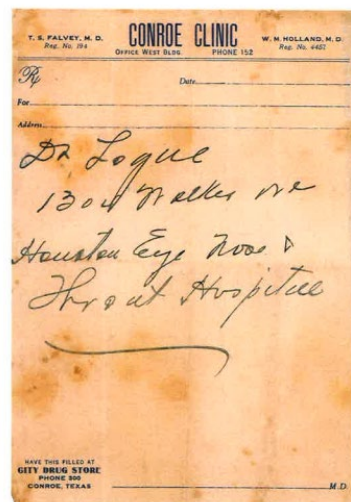 T. S. FALVEY, M. D.
Reg. No. 194
CONROE CLINIC
OFFICE WEST BLDG PHONE 152
W. M. HOLLAND, M. D.
Reg. No. 4457
Rx
Date
For
Address
Dr Logue
1304 Walker Ave
Houston Eye Nose &
Throat Hospital
HAVE THIS FILLED AT
CITY DRUG STORE
PHONE 300
CONROE, TEXAS
M. D.